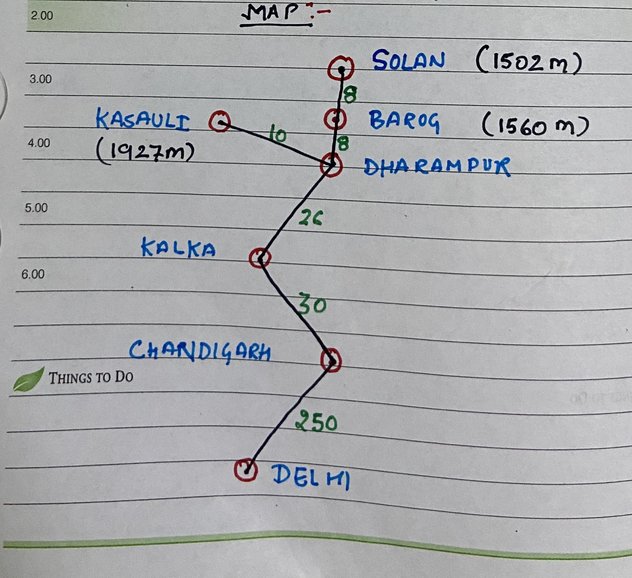 2.00
MAP:-
SOLAN (1502m)
3.00
8
KASAULI
BAROG (1560m)
10
4.00
(1927m)
8
DHARAMPUR
5.00
26
KALKA
6.00
30
CHANDIGARH
THINGS TO DO
250
DELHI